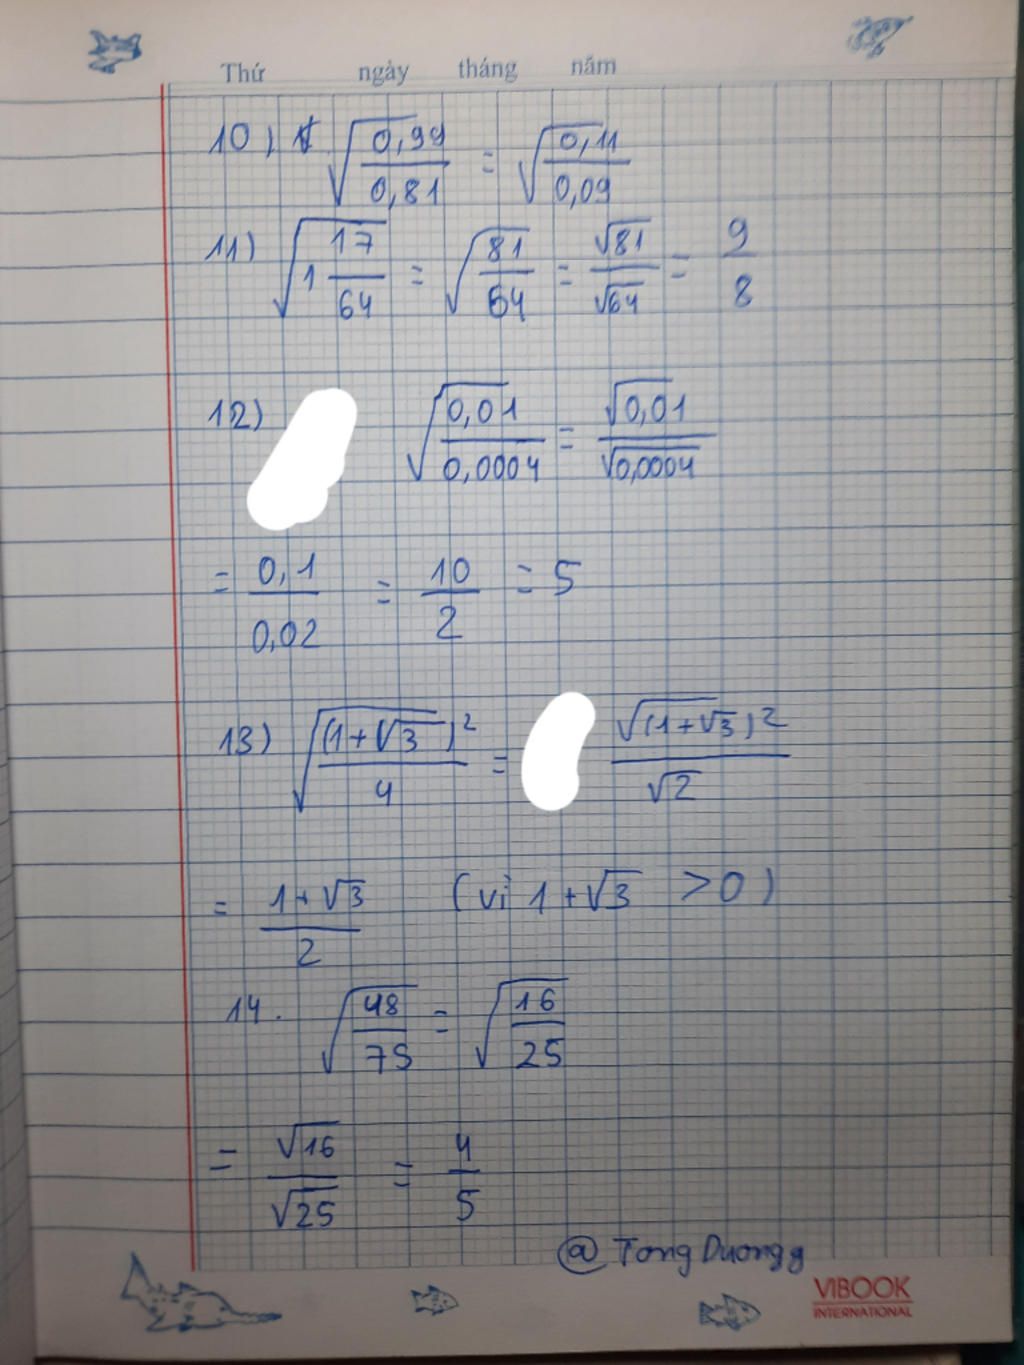 Thứ ngày tháng năm
10) √(0,99/0,81) = √(0,11/0,09)
11) √(1 17/64) = √(81/64) = √81/√64 = 9/8
12) √(0,01/0,0004) = √0,01/√0,0004
= 0,1/0,02 = 10/2 = 5
13) √((1+√3)²/4) = √(1+√3)²/√2
= (1+√3)/2 (vì 1+√3 >0)
14. √(48/75) = √(16/25)
= √16/√25 = 4/5
@ TongDuongg
VIBOOK
INTERNATIONAL